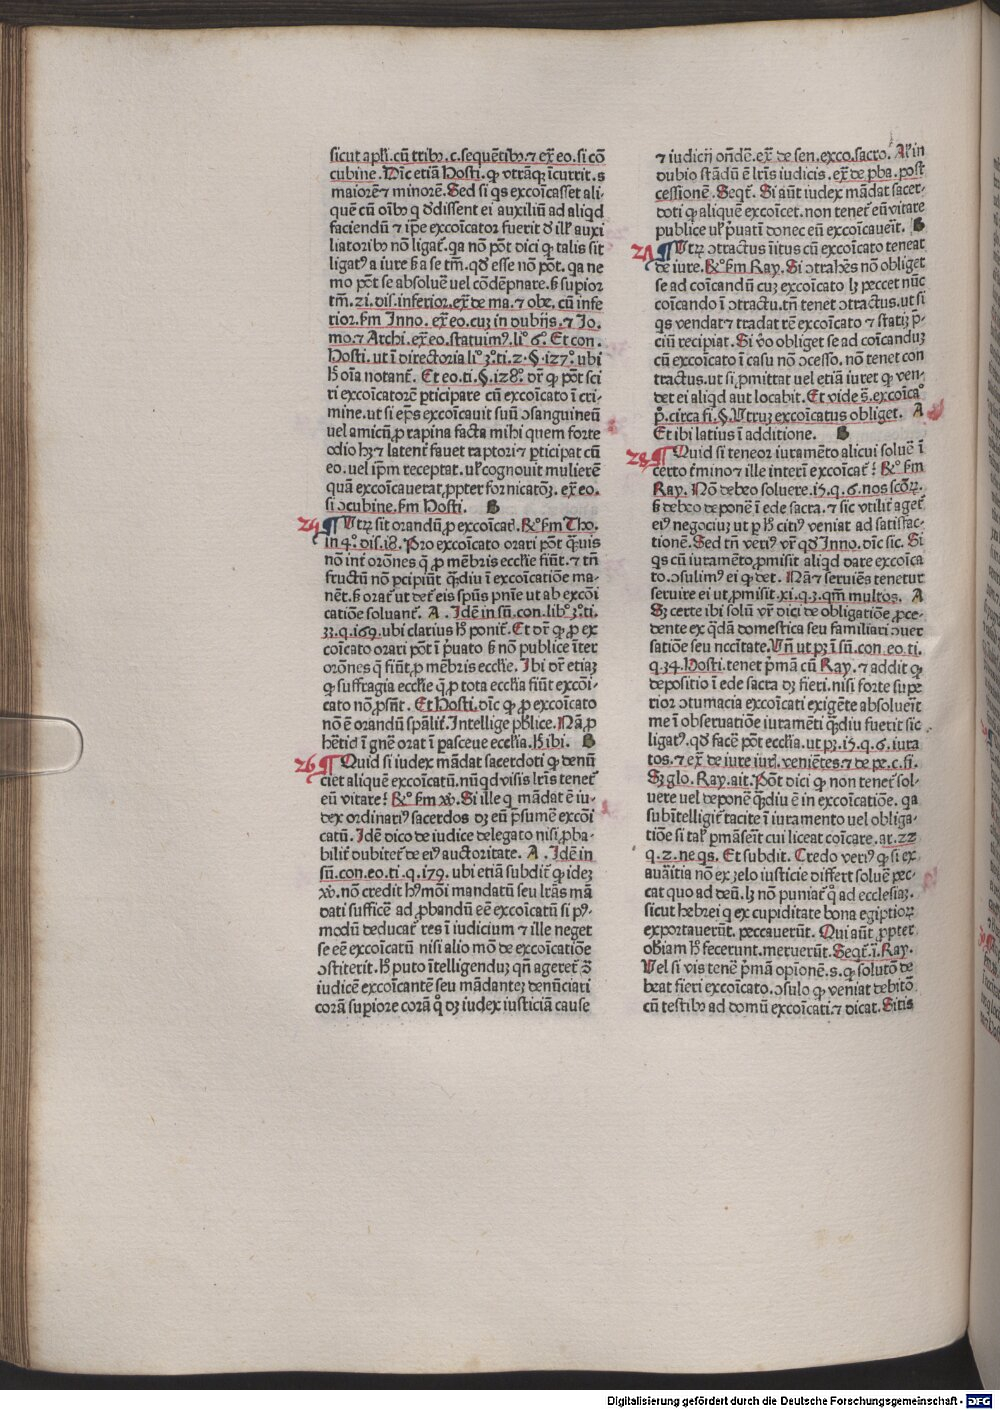 sicut apl'i. cū tribꝰ. c. sequētibꝰ. ⁊ ex̄ eo. si cō
cubine. Dic̄ etiā Hosti. ꝙ vtrāqꝫ īcurrit. s
maiorē ⁊ minorē. Sed si qs excōicasset ali-
quē cū oībꝰ q̄ dedissent ei auxiliū ad aliqd
faciendū ⁊ ip̄e excōicator fuerit d' ill' auxi
liatoribꝰ nō ligat᷑. qa nō pōt dici ꝙ talis sit
ligatꝰ a iure ẞ a se tm̄. qd̄ esse nō pōt. qa ne
mo pōt se absoluē uel cōdēpnare. ẞ supior
tm̄. 21. dis. inferior. ex̄ de ma. ⁊ obe. cū infe
rior. ẜm Inno. ex̄ eo. cuꝫ in dubijs. ⁊ Jo.
mo. ⁊ Archi. ex̄ eo. statuimꝰ. li° 6°. Et con.
Hosti. ut ī directoria li° 3°. ti. 2. §. 127°. ubi
h̄ oīa notant᷑. Et eo. ti. §. 128°. dr̄ ꝙ pōt sci
ri excōicatorē ꝑticipare cū excōicato ī cri-
mine. ut si ep̄s excōicauit suū ɔsanguineū
uel amicū ꝓ rapina facta mihi quem forte
odio hꝫ ⁊ latent᷑ fauet raptori ⁊ ꝑticipat cū
eo. uel ip̄m receptat. ul' cognouit mulierē
quā excōicauerat ꝓpter fornicatōꝫ. ex̄ eo.
si ɔcubine. ẜm Hosti. B
25 ¶ Utrꝫ sit orandū ꝓ excōicat᷑. ℞° ẜm Tho.
in 4°. dis. 18. Pro excōicato orari pōt q̄uis
nō int᷑ orōnes q̄ ꝓ mēbris eccl'ie fiūt. ⁊ tn̄
fructū nō ꝑcipiūt q̄ꝫdiu ī excōicatiōe ma-
nēt. ẞ orat᷑ ut det᷑ eis spūs pn̄ie ut ab excōi
catiōe soluant᷑. A . Idē in sū. con. lib° 3°. ti.
33. q. 169. ubi clarius h̄ ponit᷑. Et dr̄ ꝙ ꝓ ex
cōicato orari pōt ī p̓uato ẞ nō publice īter
orōnes q̄ fiūt ꝓ mēbris eccl'ie. Ibi dr̄ etiaꝫ
ꝙ suffragia eccl'ie q̄ ꝓ tota eccl'ia fiūt excōi-
cato nō ꝓsūt. Et Hosti. dic̄ ꝙ ꝓ excōicato
nō ē orandū spāl'it᷑. Intellige pb'lice. Nā ꝓ
hēticd ī gn̄e orat ī pasceue eccl'ia. H̄ ibi. B
26 ¶ Quid si iudex mādat sacerdoti ꝙ denū
ciet aliquē excōicatū. nūqd visis lr̄is tenet᷑
eū vitare? ℞° ẜm xꝰ. Si ille q̄ mādat ē iu-
dex ordinariꝰ sacerdos dꝫ eū p̄sumē excōi
catū. Idē dico de iudice delegato nisi ꝓba-
bilit᷑ dubitet᷑ de eiꝰ auctoritate. A . Idē in
sū. con. eo. ti. q. 179. ubi etiā subdit᷑ ꝙ ideꝫ
xꝰ. nō credit hꝰmōi mandatū seu lr̄as mā
dati sufficē ad ꝓbandū eē excōicatū si pꝰ-
modū deducat᷑ res ī iudicium ⁊ ille neget
se eē excōicatū nisi alio mō de excōicatiōe
ɔstiterit. H̄ puto ītelligenduꝫ qn̄ ageret᷑ ɔ̄
iudicē excōicantē seu mādanteꝫ denūciari
corā supiore corā q° dꝫ iudex iusticiā cause
⁊ iudicij on̄dē. ex̄ de sen. exco. sacro. Al' in
dubio stādū ē lr̄is iudicis. ex̄ de pba. post
cessionē. Seqt᷑. Si aūt iudex mādat sacer-
doti ꝙ aliquē excōicet. non tenet᷑ eū vitare
publice ul' p̓uati donec eū excōicauēit. B
27 ¶ Utrꝫ ɔtractus īitus cū excōicato teneat
de iure. ℞° ẜm Ray. Si ɔtrahēs nō obliget
se ad cōicandū cuꝫ excōicato lꝫ peccet nūc
cōicando ī ɔtractu. tn̄ tenet ɔtractus. ut si
qs vendat ⁊ tradat rē excōicato ⁊ statiꝫ p̄-
ciū recipiat. Si v̓o obliget se ad cōicanduꝫ
cū excōicato ī casu nō ɔcesso. nō tenet con
tractus. ut si ꝓmittat uel etiā iuret ꝙ ven-
det ei aliqd aut locabit. Et vide s̄. excōica°
p̓. circa fi. §. Vtruꝫ excōicatus obliget. A
Et ibi latius ī additione. B
28 ¶ Quid si teneor iuramēto alicui soluē ī
certo t᷑mino ⁊ ille interī excōicat᷑? ℞° ẜm
Ray. Nō debeo soluere. 15. q. 6. nos scōꝝ.
ẞ debeo deponē ī ede sacra. ⁊ sic vtilit᷑ aget᷑
eiꝰ negociuꝫ ut ꝑ h̄ citiꝰ veniat ad satisfac-
tionē. Sed tn̄ veriꝰ vr̄ qd̄ Inno. dic̄ sic. Si
qs cū iuramēto ꝓmisit aliqd dare excōica
to. ɔsulimꝰ ei ꝙ det. Nā ⁊ seruiēs tenetur
seruire ei ut ꝓmisit. xi. q. 3. qm̄ multos. A
Sꝫ certe ibi solū vr̄ dici de obligatiōe ꝓce-
dente ex q̄dā domestica seu familiari ɔuer
satiōe seu nccītate. Vn̄ ut pꝫ ī sū. con. eo. ti.
q. 34. Hosti. tenet p̓mā cū Ray. ⁊ addit ꝙ
depositio ī ede sacra dꝫ fieri. nisi forte supe
rior ɔtumacia excōicati exigēte absoluēit
me ī obseruatiōe iuramēti q̄ꝫdiu fuerit sic
ligatꝰ. qd̄ facē pōt eccl'ia. ut pꝫ. 15. q. 6. iura
tos. ⁊ ex̄ de iure iur̄. veniētes. ⁊ de pe. c. fi.
Sꝫ glo. Ray. ait. Pōt dici ꝙ non tenet᷑ sol-
uere uel deponē q̄ꝫdiu ē in excōicatiōe. qa
subītelligit᷑ tacite ī iuramento uel obliga-
tiōe si tal' ꝑmāsent cui liceat cōicare. ar. 22
q. 2. ne qs. Et subdit. Credo veriꝰ ꝙ si ex
auaītia nō ex ꝫelo iusticie differt soluē pec-
cat quo ad deū. lꝫ nō puniat᷑ q° ad ecclesiaꝫ.
sicut hebrei q̄ ex cupiditate bona egiptioꝝ
exportauerūt. peccauerūt. Qui aūt ꝓpter
obīam h̄ fecerunt. meruerūt. Seqt᷑. ī. Ray.
Vel si vis tenē p̓mā opīonē. s. ꝙ solutō de
beat fieri excōicato. ɔsulo ꝙ veniat debitō
cū testibꝰ ad domū excōicati. ⁊ dicat. Sitis
Digitalisierung gefördert durch die Deutsche Forschungsgemeinschaft - DFG